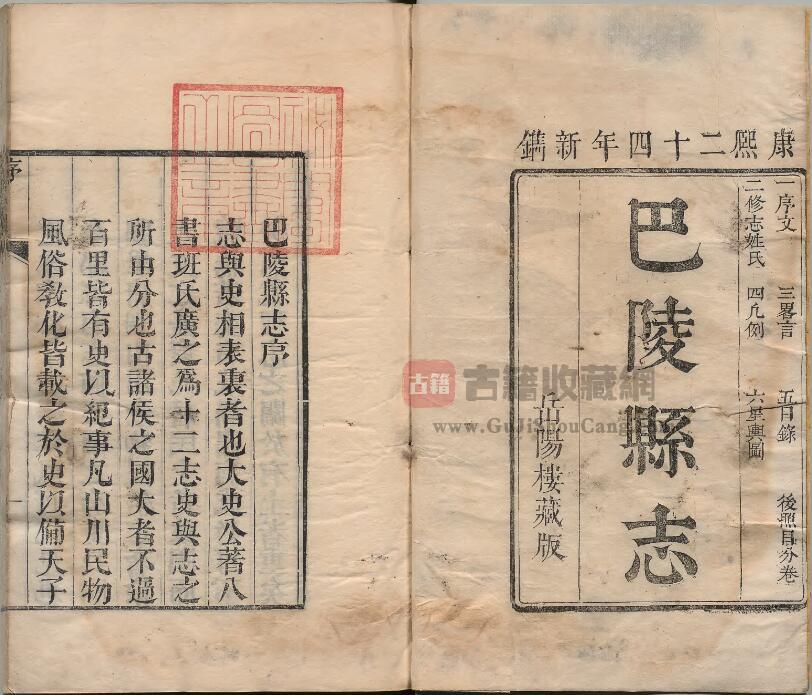 康熙二十四年新鐫
一序文 三畧言 五目錄 後照目分卷
二修志姓氏 四凡例 六星輿圖
巴陵縣志
岳陽樓藏版
巴陵縣志序
志與史相表裏者也大史公著八
書班氏廣之爲十二志史與志之
所由分也古諸侯之國大者不過
百里皆有史以紀事凡山川民物
風俗敎化皆載之於史以備天子
序
古籍 古籍收藏網
www.GuJiShouCang